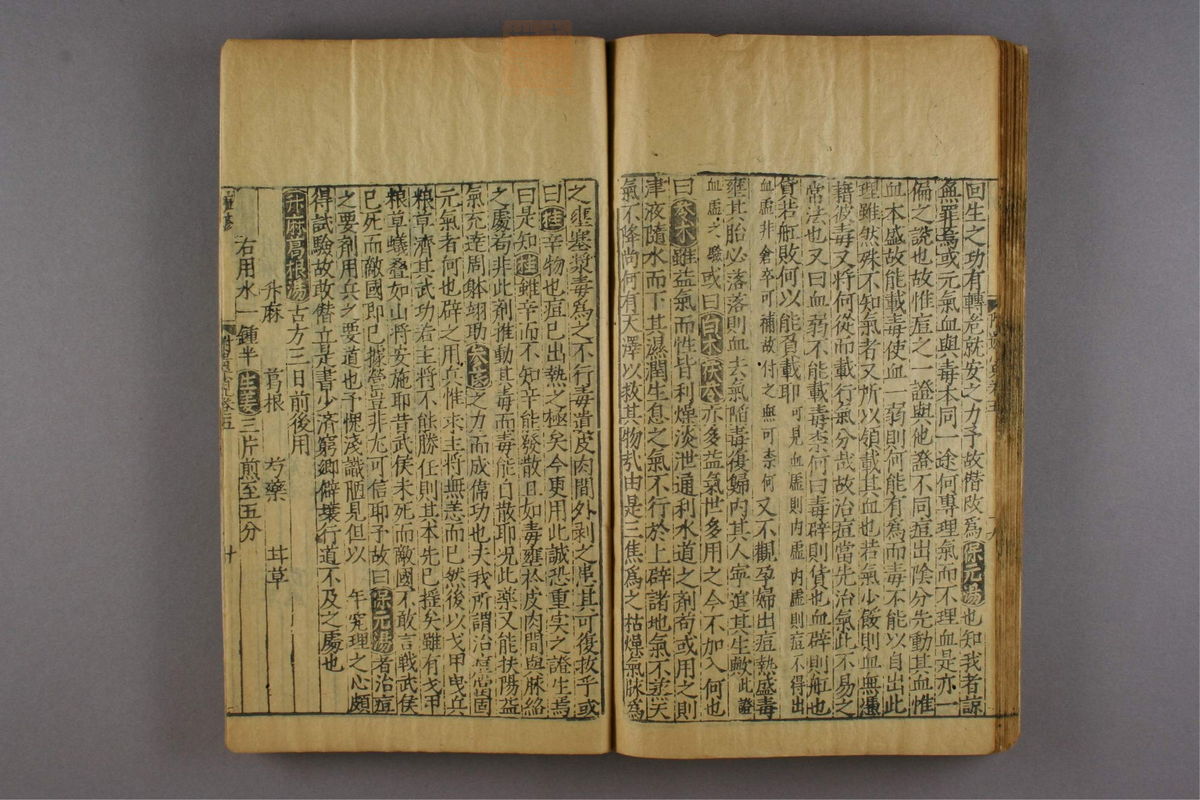 回生之功有轉危就安之力予故僣改為保元湯也知我者諒
無罪焉或元氣血與毒本同一途何專理氣而不理血是亦一
偏之說也故惟痘之一證與他證不同痘出陰分先動其血惟
血本盛故能載毒使血一弱則何能有為而毒不能以自出此
理雖然殊不知氣者又所以領載其血也若氣少餒則血無憑
藉彼毒又將何從而載行氣分哉故治痘當先治氣此不易之
常法也又曰血弱不能載毒柰何曰毒辟則貨也血辟則舡也
貨若舡敗何以能負載耶可見血虛則内虛内虛則痘不得出
血虛非倉卒可補故付之無可柰何又不觀孕婦出痘熱盛毒
壅其胎必落落則血去氣陷毒復歸内其人寧遑其生歟此證
血虛之驗或曰白朮茯苓亦多益氣世多用之今不加入何也
曰參朮雖益氣而性皆利燥淡泄通利水道之剤苟或用之則
津液隨水而下其濕潤生息之氣不行於上辟諸地氣不蒸天
氣不降尚何有天澤以救其物㢤由是三焦為之枯燥氣脉為
之壅塞漿毒為之不行毒遺皮肉間外剥之患其可復拔乎或
曰桂辛物也痘已出熱之極矣今更用此誠恐重实之證生焉
曰是知桂雖辛而不知辛能發散且如毒壅於皮肉間與脉絡
之處苟非此剤推動其毒而毒能自散耶况此藥又能扶陽益
氣充達周躰翊助參芪之力而成偉功也夫我所謂治當固
元氣者何也辟之用兵惟求主將無恙而已然後以戈甲曳兵
粮草濟其武功若主將不能勝任則其本先已揺矣雖有戈甲
粮草蟻叠如山將安施耶昔武侯未死而敵國不敢言戰武侯
已死而敵國即已據營豈非尢可信耶予故曰保元湯者治痘
之要剤用兵之要道也予愧淺識陋見但以年究理之心頗
得試驗故敢僣立是書少济窮鄉僻壤行道不及之處也
升麻葛根湯古方三日前後用
升麻 葛根 芍藥 甘草
右用水一鍾半生姜三片煎至五分